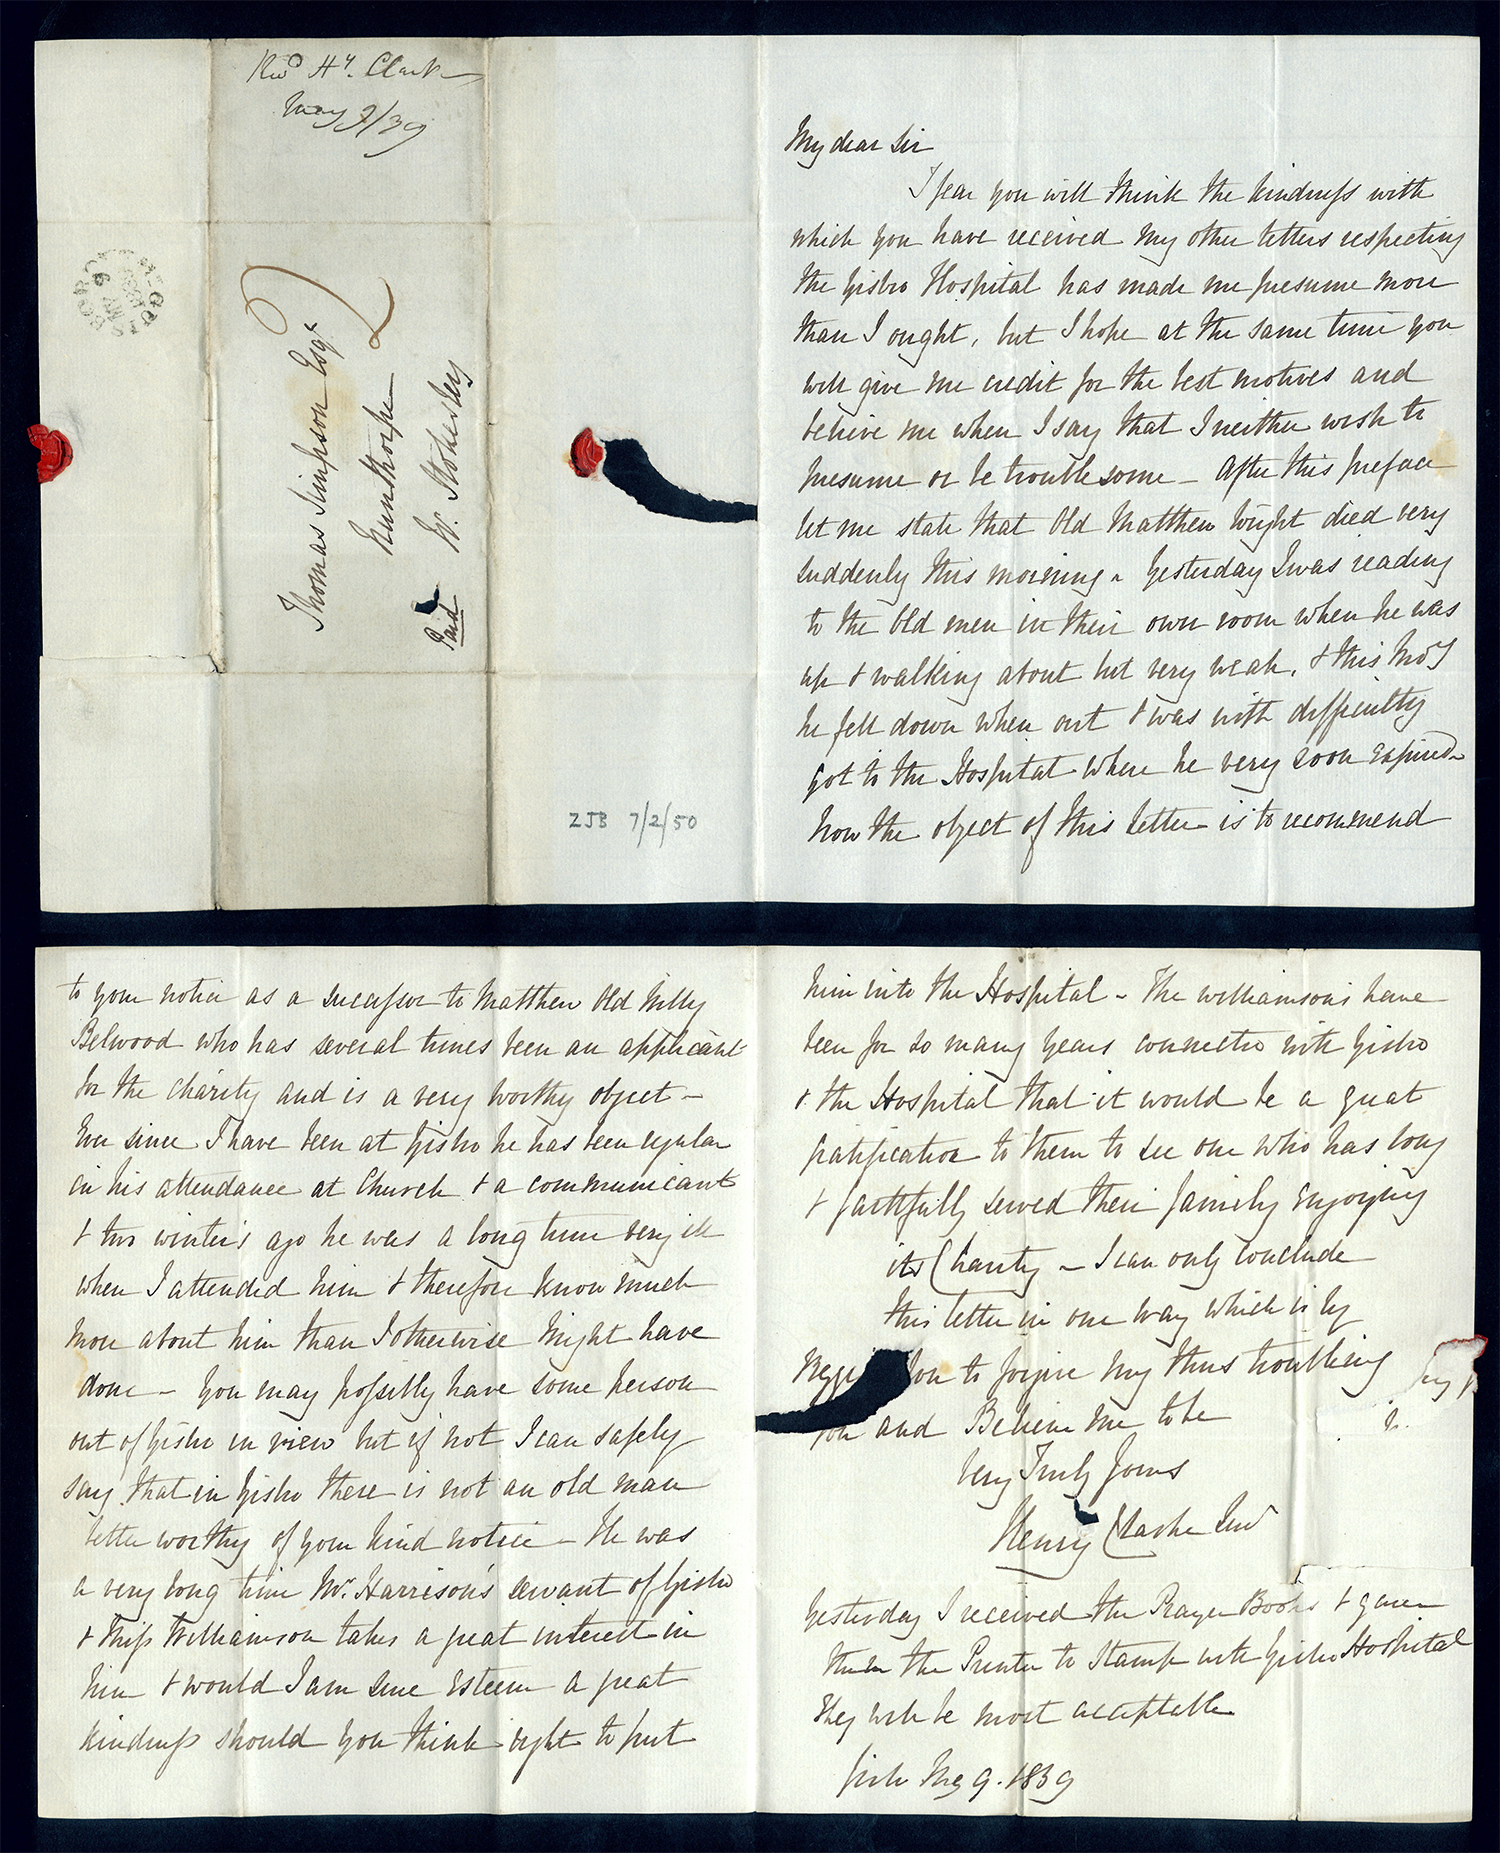 Revd Hy. Clarke
May 9/39
GUISBOROUGH
2
Thomas Simpson Esqr
Nunthorpe
Nr. Stokesley
Paid
ZJB 7/2/50
My dear Sir
I fear you will think the kindness with
which you have received my other letters respecting
the Gisbro Hospital has made me presume more
than I ought, but I hope at the same time you
will give me credit for the best motives and
believe me when I say that I neither wish to
presume or be troublesome - After this preface
let me state that Old Matthew Wright died very
suddenly this morning - Yesterday I was reading
to the Old men in their own room when he was
up & walking about but very weak, & this Mog
he fell down when out & was with difficulty
got to the Hospital where he very soon expired -
Now the object of this letter is to recommend
to your notice as a successor to Matthew Old Willy
Belwood who has several times been an applicant
for the Charity and is a very worthy object -
Ever since I have been at Gisbro he has been regular
in his attendance at Church & a communicant
& two winter's ago he was a long time very ill
when I attended him & therefore know much
more about him than I otherwise might have
done - You may possibly have some person
out of Gisbro in view but if not I can safely
say that in Gisbro there is not an old man
better worthy of your kind notice - He was
a very long time Mr. Harrison's servant of Gisbro
& Miss Williamson takes a great interest in
him & would I am sure esteem a great
kindness should you think right to put
him into the Hospital - The Williamson's have
been for so many years connected with Gisbro
& the Hospital that it would be a great
gratification to them to see one who has long
& faithfully served their family enjoying
its Charity - I can only conclude
this letter in one way which is by
you to forgive my thus troubling
you and Believe me to be
Very Truly Yours
Henry Clarke Junr
Yesterday I received the Prayer Books & gave
them the Printer to Stamp with Gisbro Hospital
They will be most acceptable
Gisbro May 9. 1839